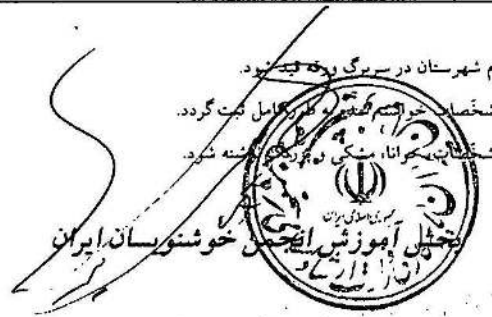 م شهرستان در سربرگ ورقه قید شود.
مشخّصات خواسته شده به طور کامل ثبت گردد.
مشخّصات، خوانا، مشکی و نوشته شود.
جمهوری اسلامی ایران
بخش آموزش انجمن خوشنویسان ایران